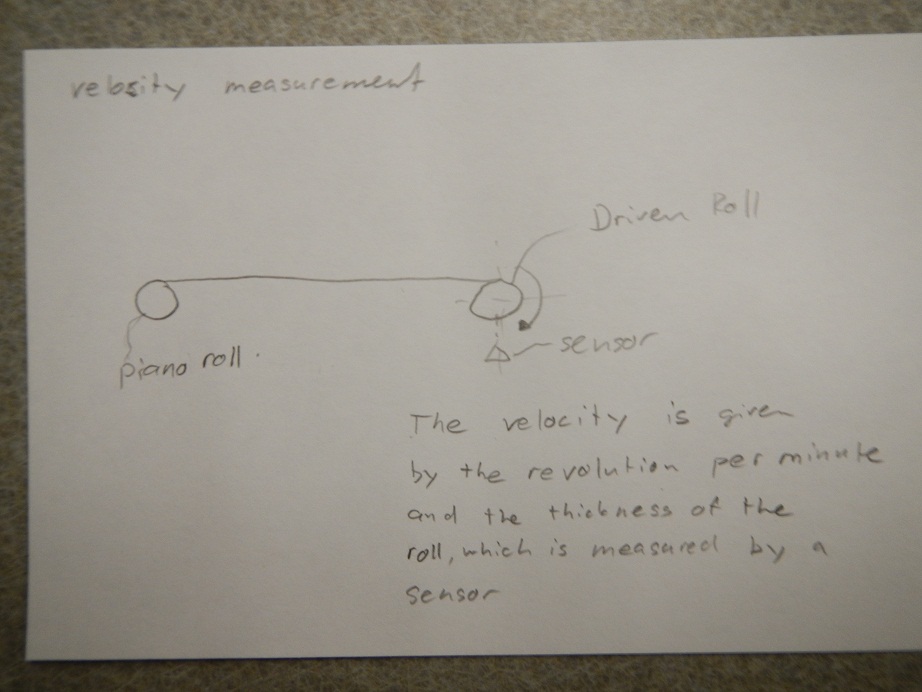 velosity measurement
Driven Roll
sensor
piano roll.
The velocity is given
by the revolution per minute
and the thickness of the
roll, which is measured by a
sensor